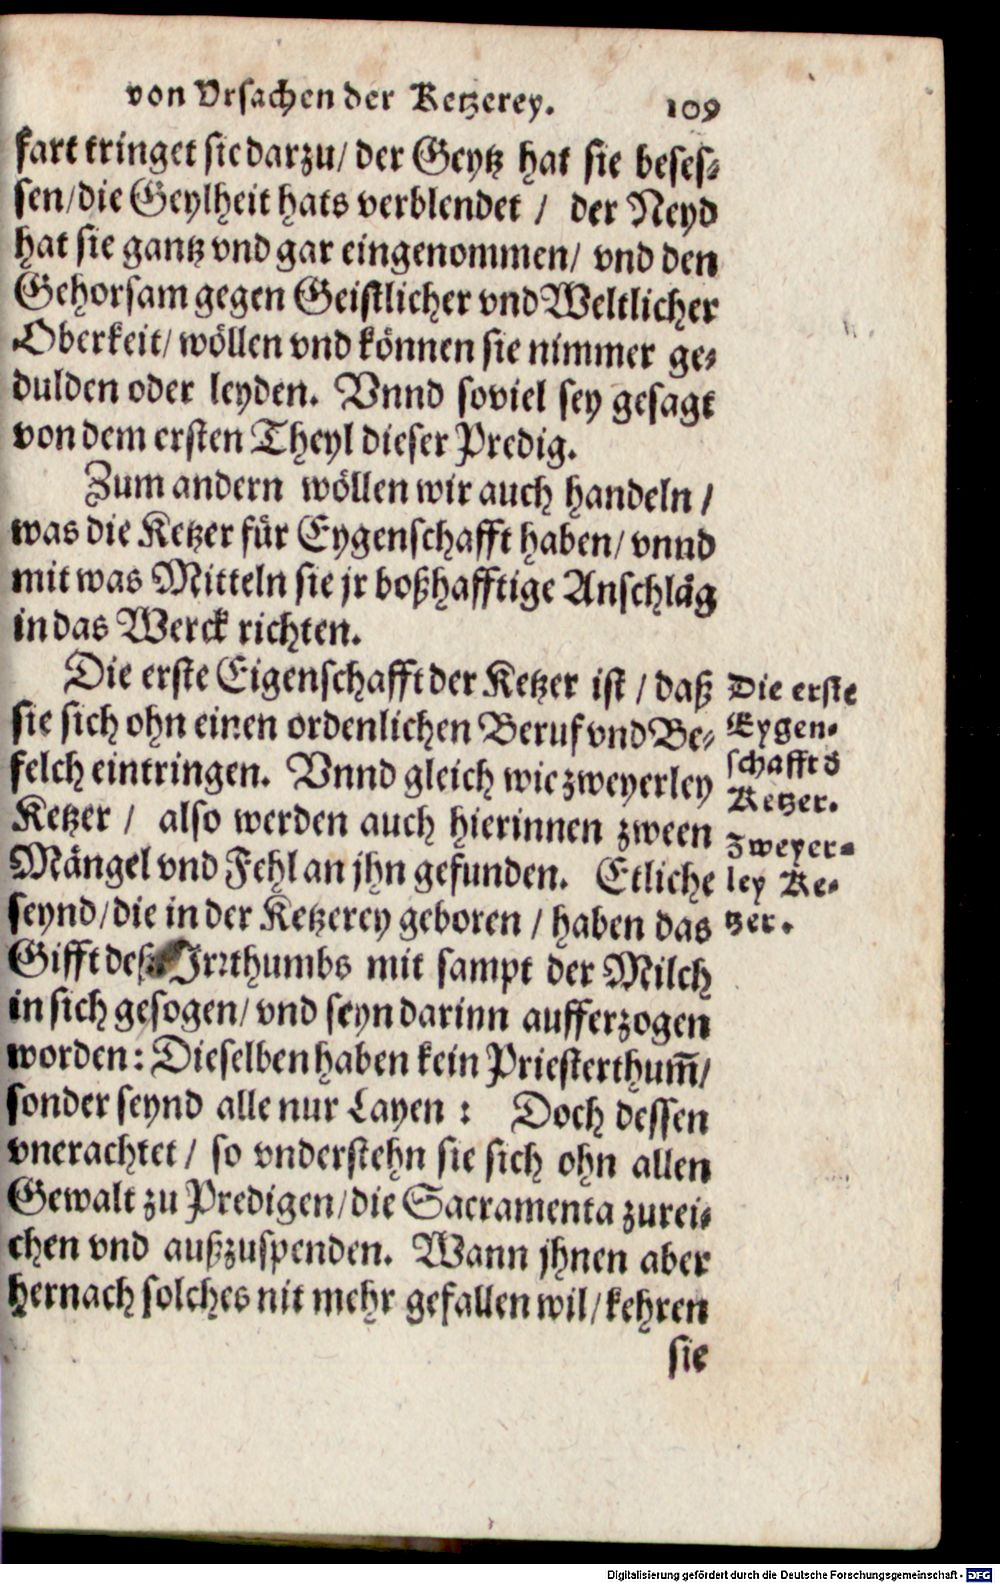 von Vrsachen der Ketzerey. 109
fart tringet sie darzu/ der Geytz hat sie beses-
sen/die Geylheit hats verblendet / der Neyd
hat sie gantz vnd gar eingenommen/ vnd den
Gehorsam gegen Geistlicher vnd Weltlicher
Oberkeit/ wöllen vnd können sie nimmer ge-
dulden oder leyden. Vnnd soviel sey gesagt
von dem ersten Theyl dieser Predig.
Zum andern wöllen wir auch handeln /
was die Ketzer für Eygenschafft haben/ vnnd
mit was Mitteln sie jr boßhafftige Anschläg
in das Werck richten.
Die erste Eigenschafft der Ketzer ist / daß
sie sich ohn einen ordenlichen Beruf vnd Be-
felch eintringen. Vnnd gleich wie zweyerley
Ketzer / also werden auch hierinnen zween
Mängel vnd Fehl an jhn gefunden. Etliche
seynd/die in der Ketzerey geboren / haben das
Gifft deß Irrthumbs mit sampt der Milch
in sich gesogen/ vnd seyn darinn aufferzogen
worden: Dieselben haben kein Priesterthum̃/
sonder seynd alle nur Layen : Doch dessen
vnerachtet / so vnderstehn sie sich ohn allen
Gewalt zu Predigen/die Sacramenta zurei-
chen vnd außzuspenden. Wann jhnen aber
hernach solches nit mehr gefallen wil/ kehren
sie
Die erste
Eygen-
schafft d
Ketzer.
Zweyer-
ley Ke-
tzer.
Digitalisierung gefördert durch die Deutsche Forschungsgemeinschaft - DFG